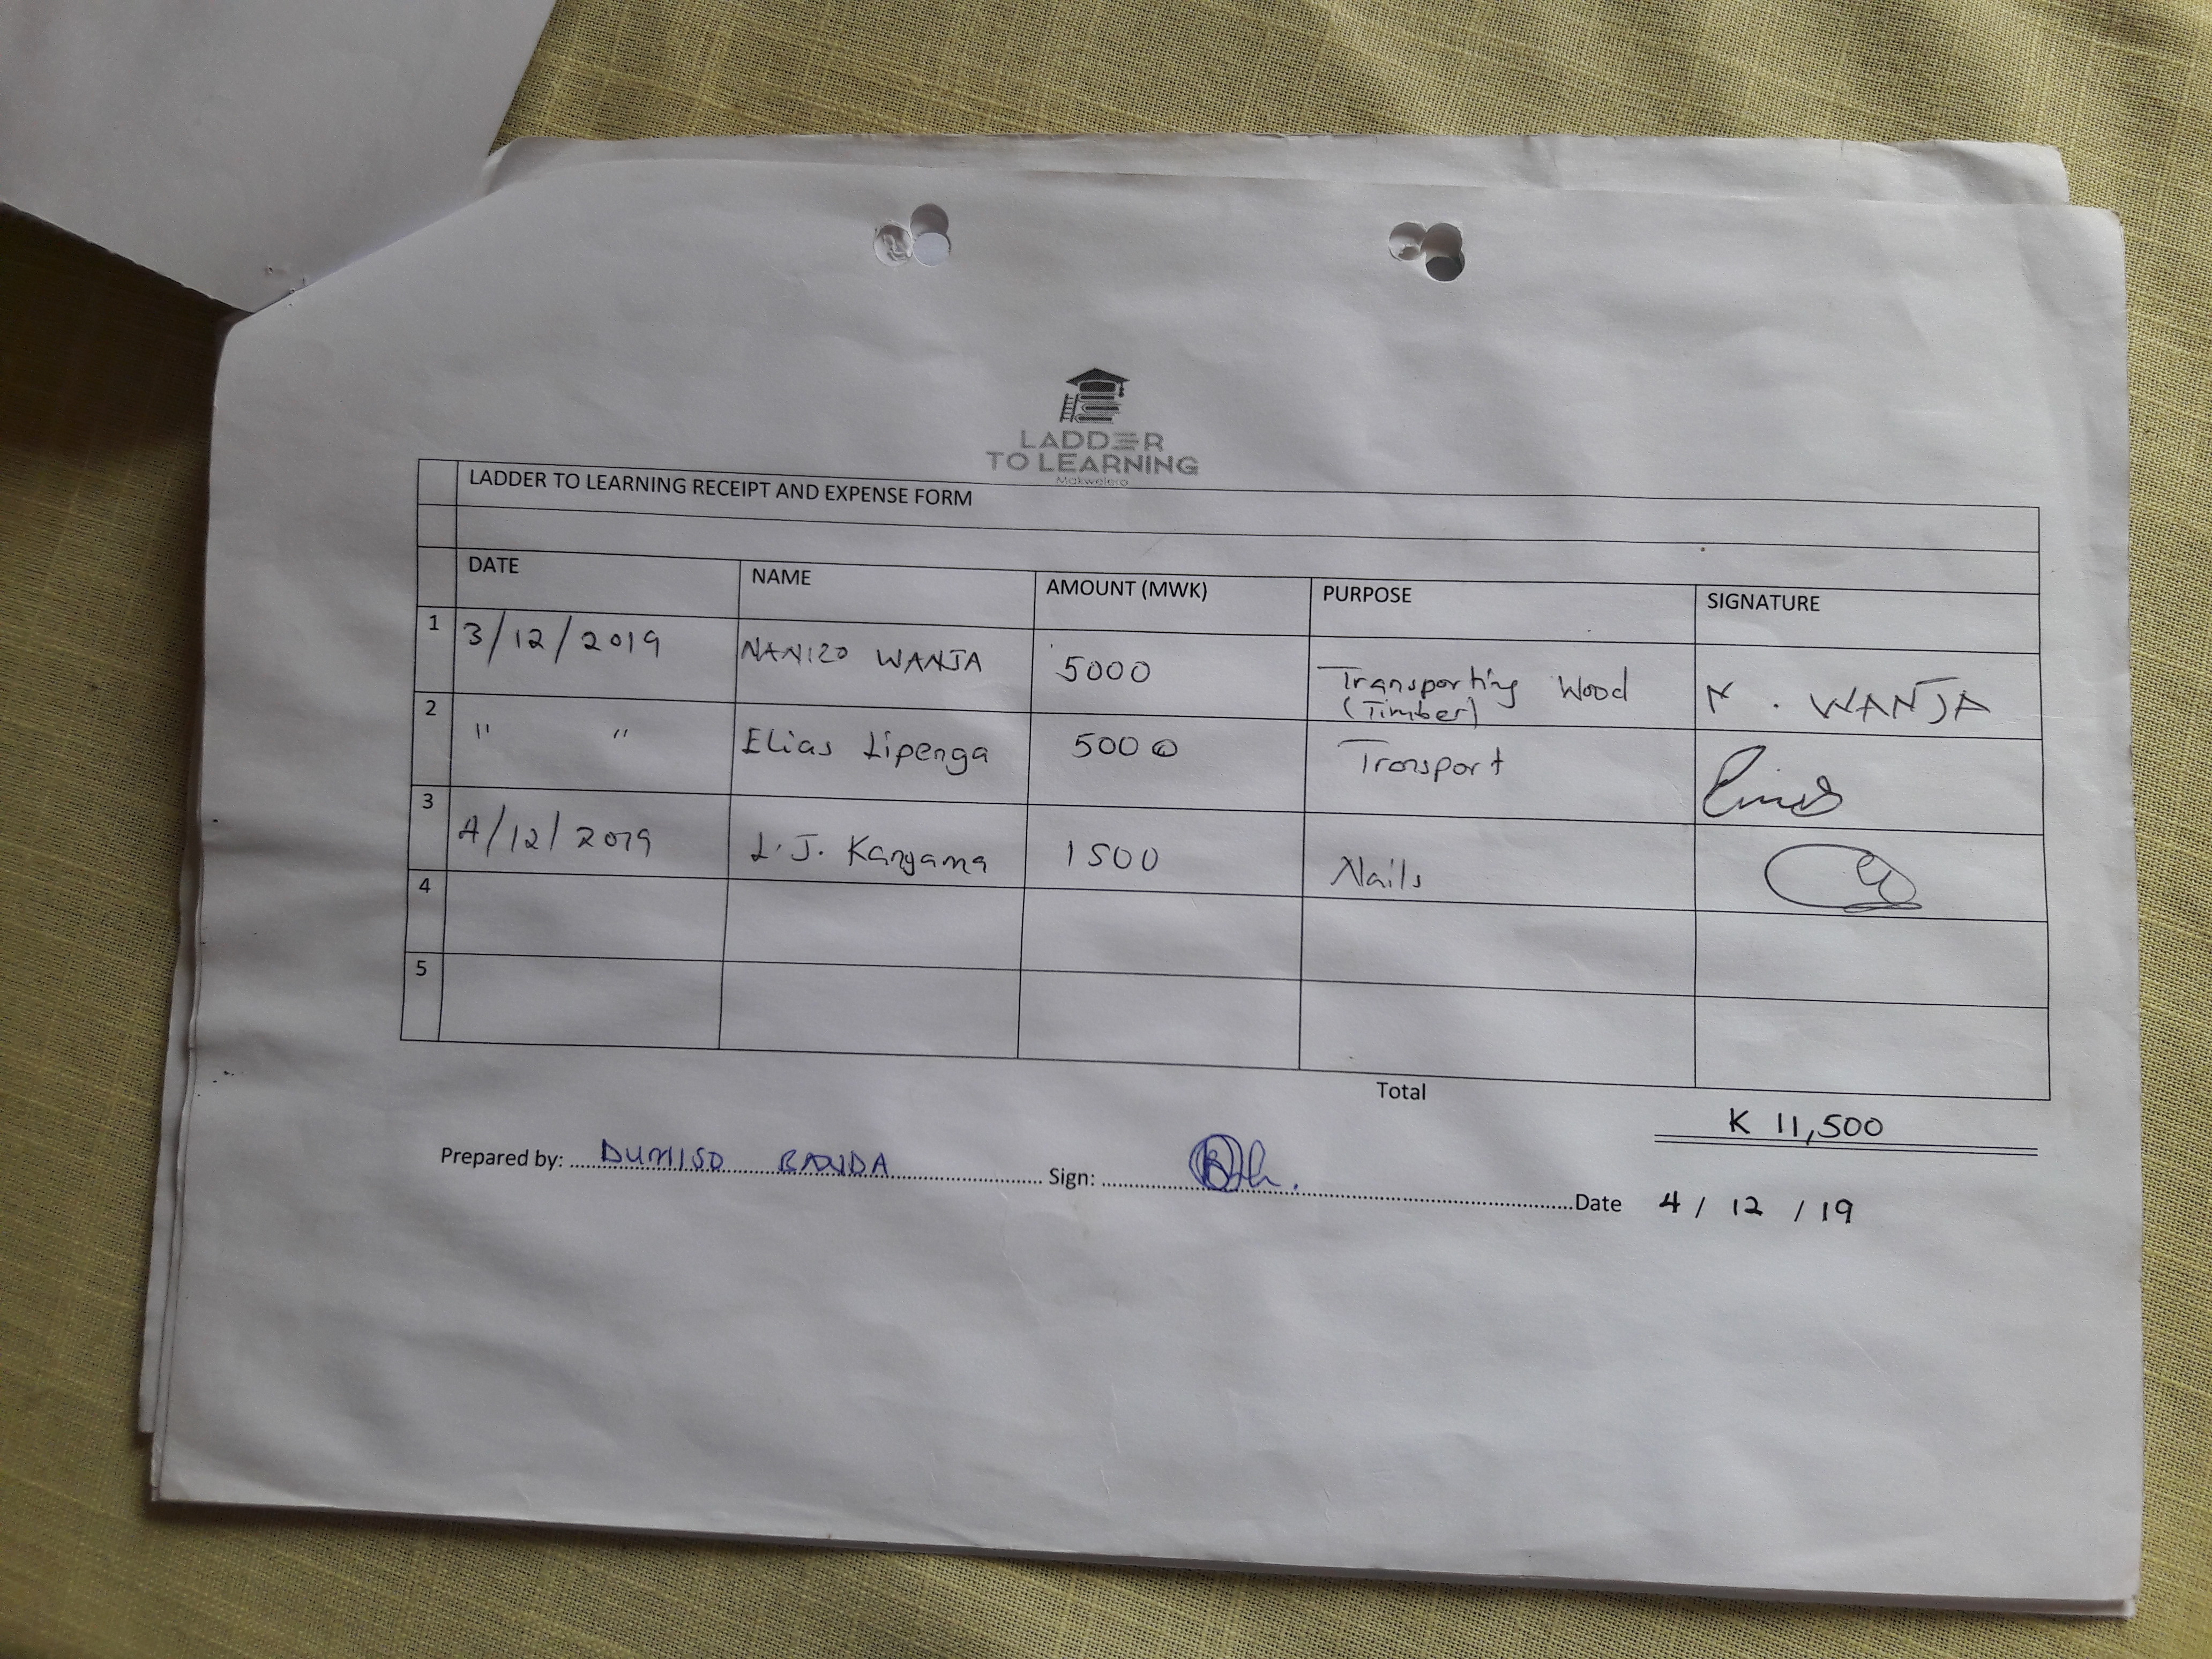 LADDER
TO LEARNING
Makwelero
LADDER TO LEARNING RECEIPT AND EXPENSE FORM
DATE NAME AMOUNT (MWK) PURPOSE SIGNATURE
1 3/12/2019 NANIZO WANJA 5000 Transporting Wood (Timber) N. WANJA
2 " " Elias Lipenga 5000 Transport
3 4/12/2019 L.J. Kanyama 1500 Nails
4
5
Total K 11,500
Prepared by: DUMISO BANDA Sign: Date 4/12/19